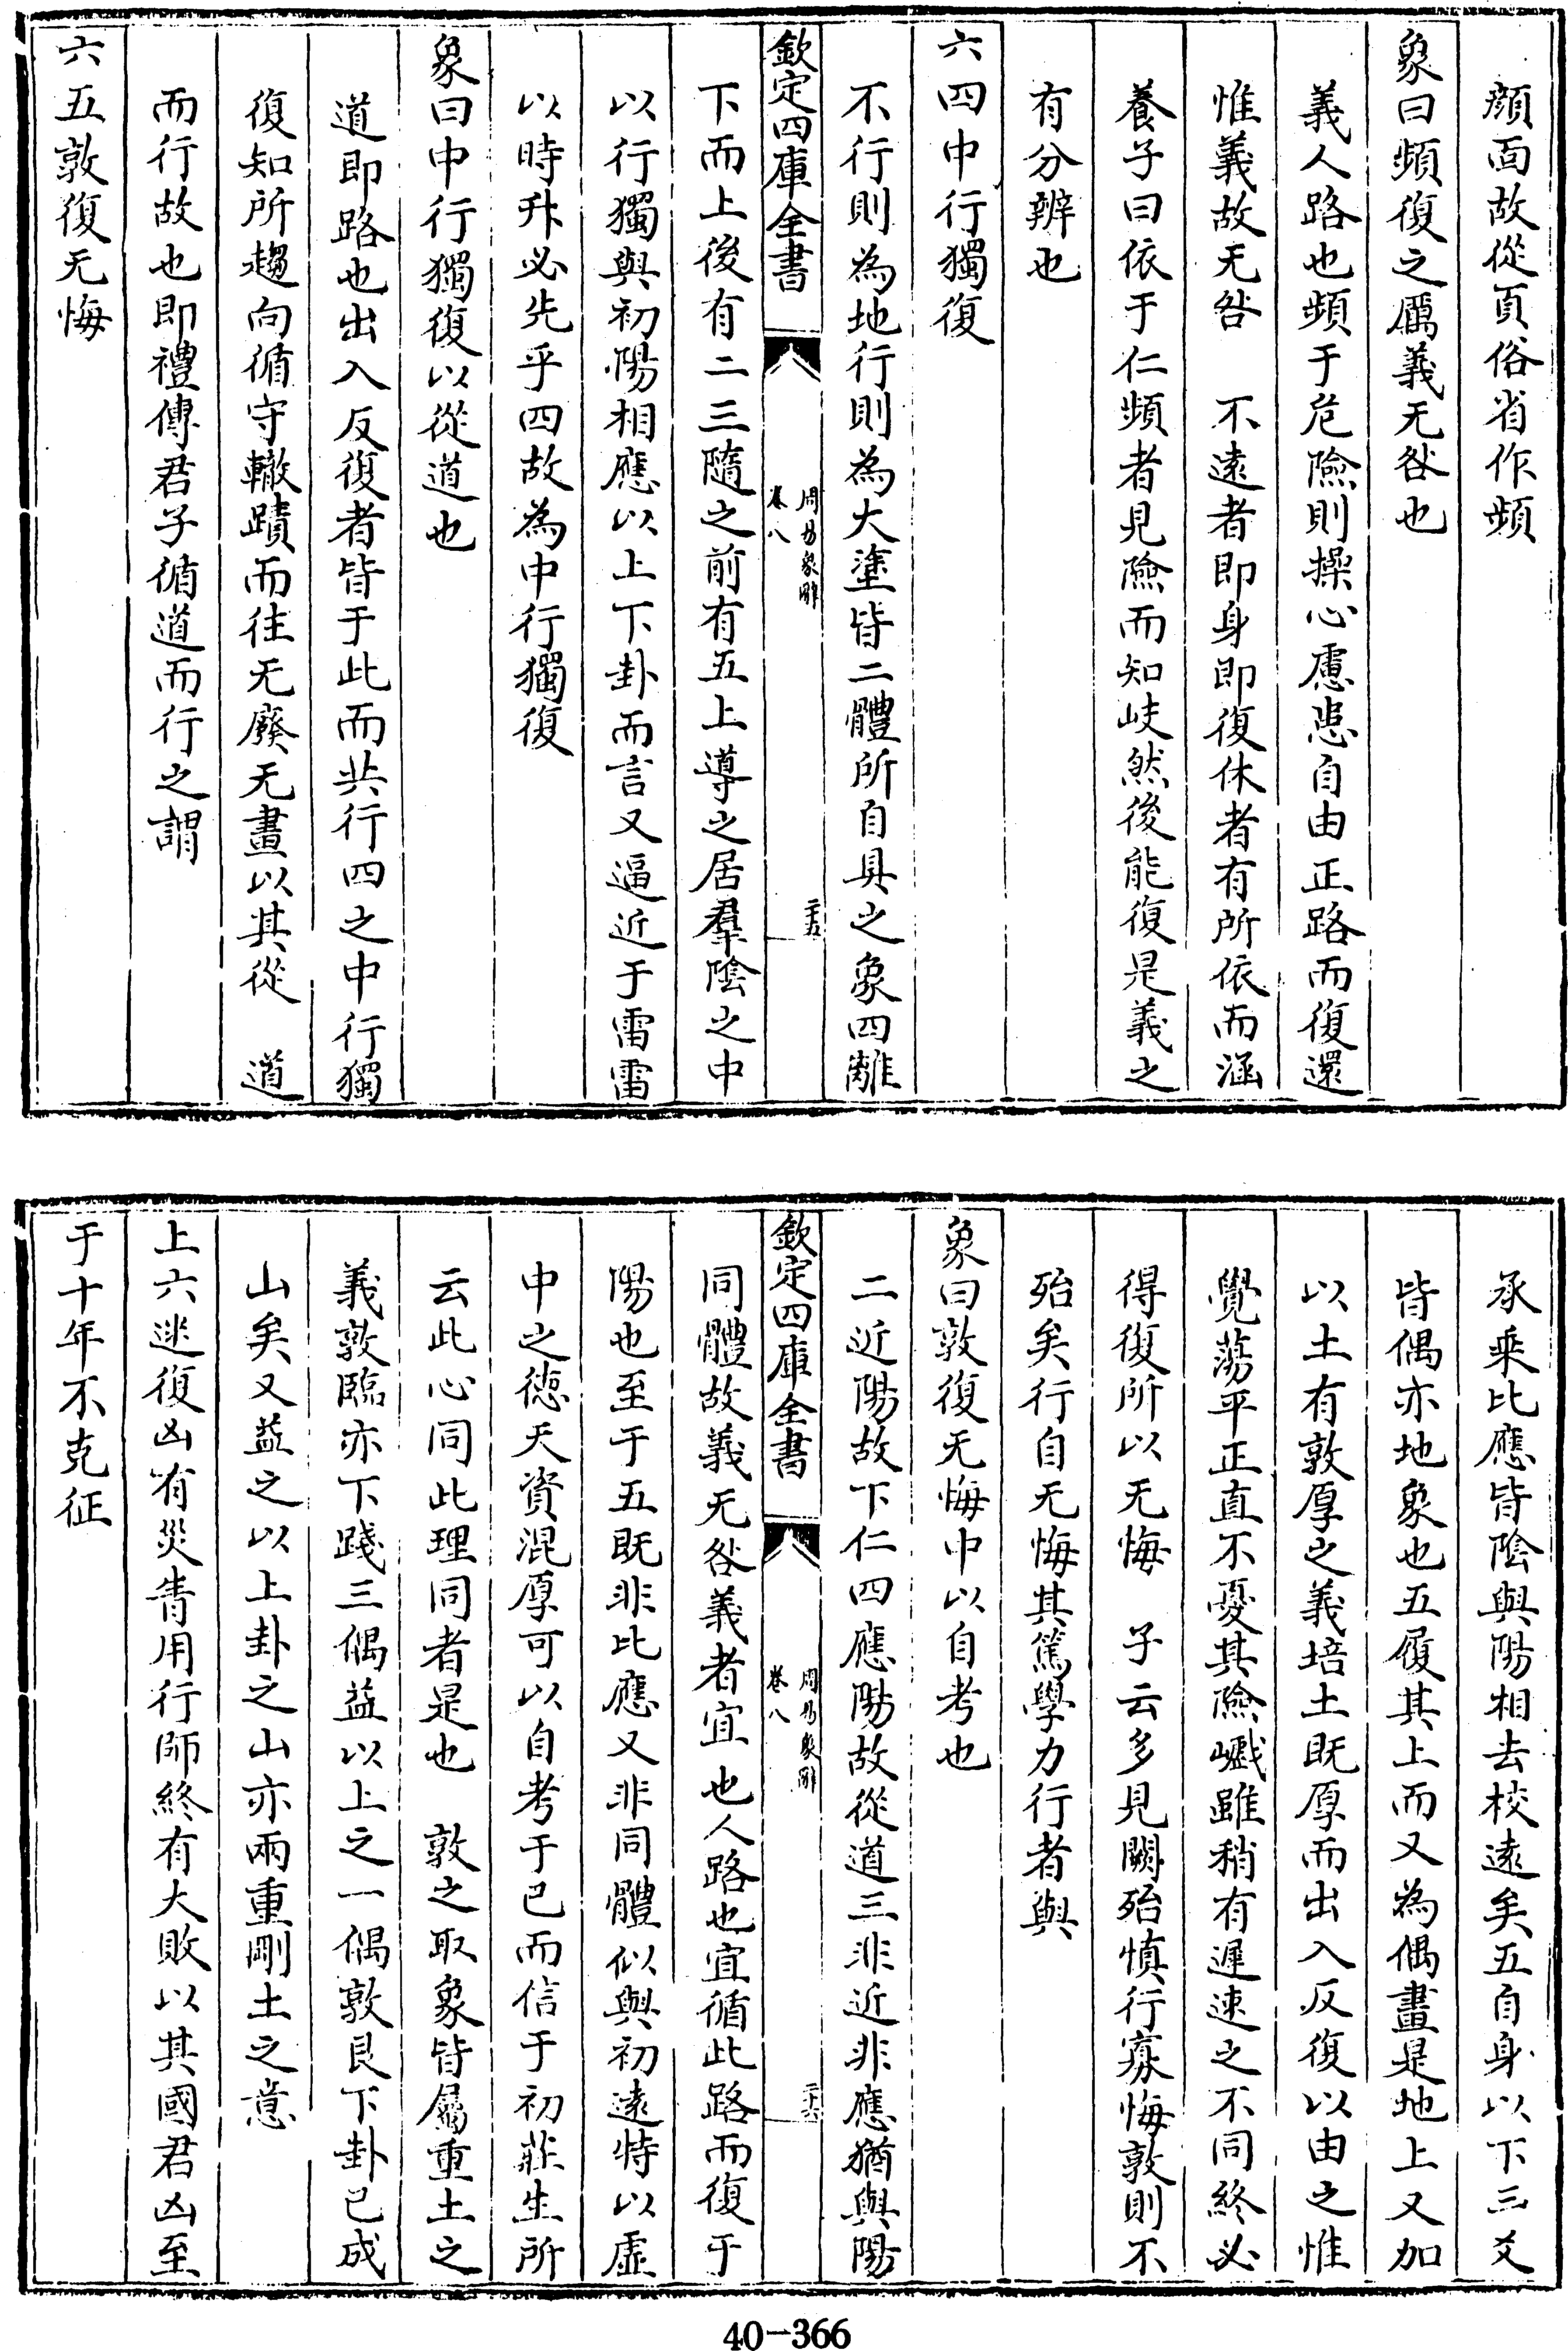 顔面故從頁俗省作頻
象曰頻復之厲義无咎也
義人路也頻于危險則操心慮患自由正路而復還
惟義故无咎　不遠者即身即復休者有所依而涵
養子曰依于仁頻者見險而知岐然後能復是義之
有分辨也
六四中行獨復
不行則為地行則為大塗皆二體所自具之象四離
欽定四庫全書
周易象辭
卷八
二十五
下而上後有二三隨之前有五上導之居羣陰之中
以行獨與初陽相應以上下卦而言又逼近于雷雷
以時升必先乎四故為中行獨復
象曰中行獨復以從道也
道即路也出入反復者皆于此而共行四之中行獨
復知所趨向循守轍蹟而往无廢无畫以其從　道
而行故也即禮傳君子循道而行之謂
六五敦復无悔
承乘比應皆陰與陽相去校遠矣五自身以下三爻
皆偶亦地象也五履其上而又為偶畫是地上又加
以土有敦厚之義培土既厚而出入反復以由之惟
覺蕩平正直不憂其險巇雖稍有遲速之不同終必
得復所以无悔　子云多見闕殆慎行寡悔敦則不
殆矣行自无悔其篤學力行者與
象曰敦復无悔中以自考也
二近陽故下仁四應陽故從道三非近非應猶與陽
欽定四庫全書
周易象辭
卷八
二十六
同體故義无咎義者宜也人路也宜循此路而復于
陽也至于五既非比應又非同體似與初遠特以虛
中之德天資混厚可以自考于己而信于初莊生所
云此心同此理同者是也　敦之取象皆屬重土之
義敦臨亦下踐三偶益以上之一偶敦艮下卦已成
山矣又益之以上卦之山亦兩重剛土之意
上六迷復凶有災眚用行師終有大敗以其國君凶至
于十年不克征
40-366